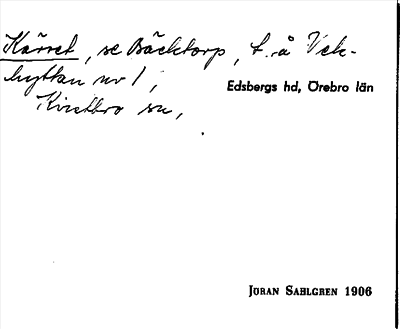 Kärret, se Bäcktorp, t. å Vek-
hyttan nr 1,
Edsbergs hd, Örebro län
Kvistbro sn,
JÖRAN SAHLGREN 1906